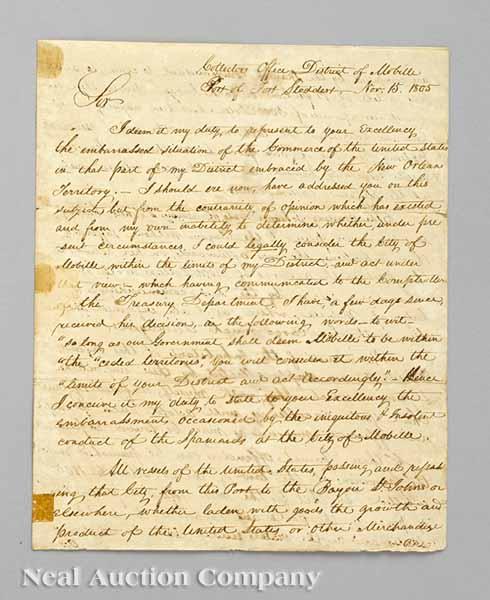 Collectors Office District of Mobille
Port of Fort Stoddert, Nov. 15. 1805
Sir
I deem it my duty, to represent to your Excellency,
the embarrassed situation of the Commerce of the United States
in that part of my District embraced by the New Orleans
Territory. — I should ere now, have addressed you on this
subject, but from the contrariety of opinion which has existed
and from my own inability to determine whether, under pre
sent circumstances, I could legally consider the City of
Mobille within the limits of my District, and act under
that view — which having communicated to the Comptroller
of the Treasury Department, I have a few days since
received his decision, in the following words — to wit —
"so long as our Government shall deem Mobille to be within
"the "ceded territories", you will consider it within the
"limits of your District and act accordingly". — Hence
I conceive it my duty to state to your Excellency the
embarrassments occasioned by the iniquitous & insolent
conduct of the Spaniards at the City of Mobille.
All vessels of the United States, passing and repass
ing that City, from this Port to the Bayou St. Johns or
elsewhere, whether laden with goods the growth and
product of the United States or other Merchandize
Neal Auction Company